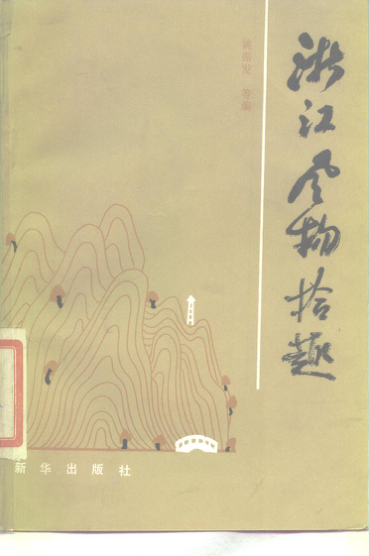 浙江风物拾趣
等编
新华出版社